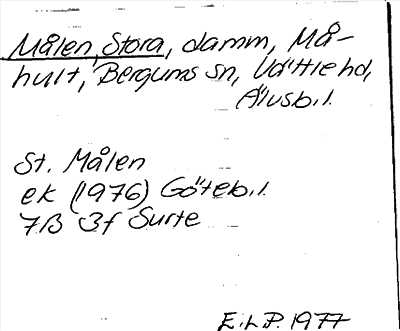 Målen, Stora, damm, Må-
hult, Bergums sn, Vättle hd,
Älvsb.l.
St. Målen
ek (1976) Göteb.l.
7B 3f Surte
E.L.P. 1977